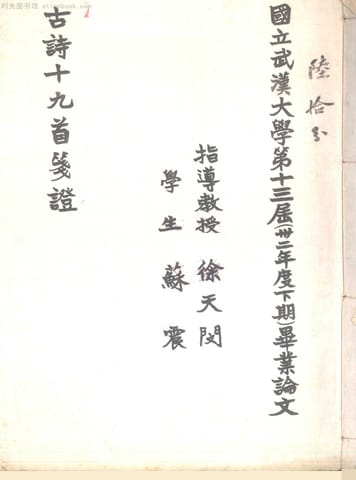 陸拾分
國立武漢大學第十三屆(卅二年度下期)畢業論文
指導教授 徐天閔
學生 蘇震
古詩十九首箋證
时光图书馆 · atlinebook.com